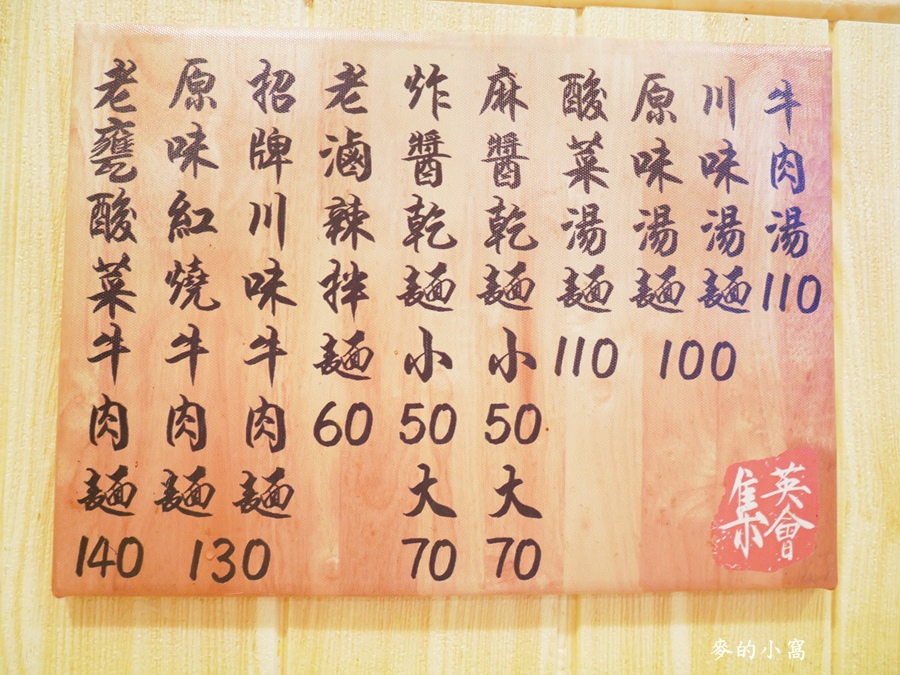 牛肉湯110
川味湯麵
原味湯麵
100
酸菜湯麵110
麻醬乾麵小50大70
炸醬乾麵小50大70
老滷辣拌麵60
招牌川味牛肉麵
原味紅燒牛肉麵
130
老甕酸菜牛肉麵140
集英會
麥的小窩